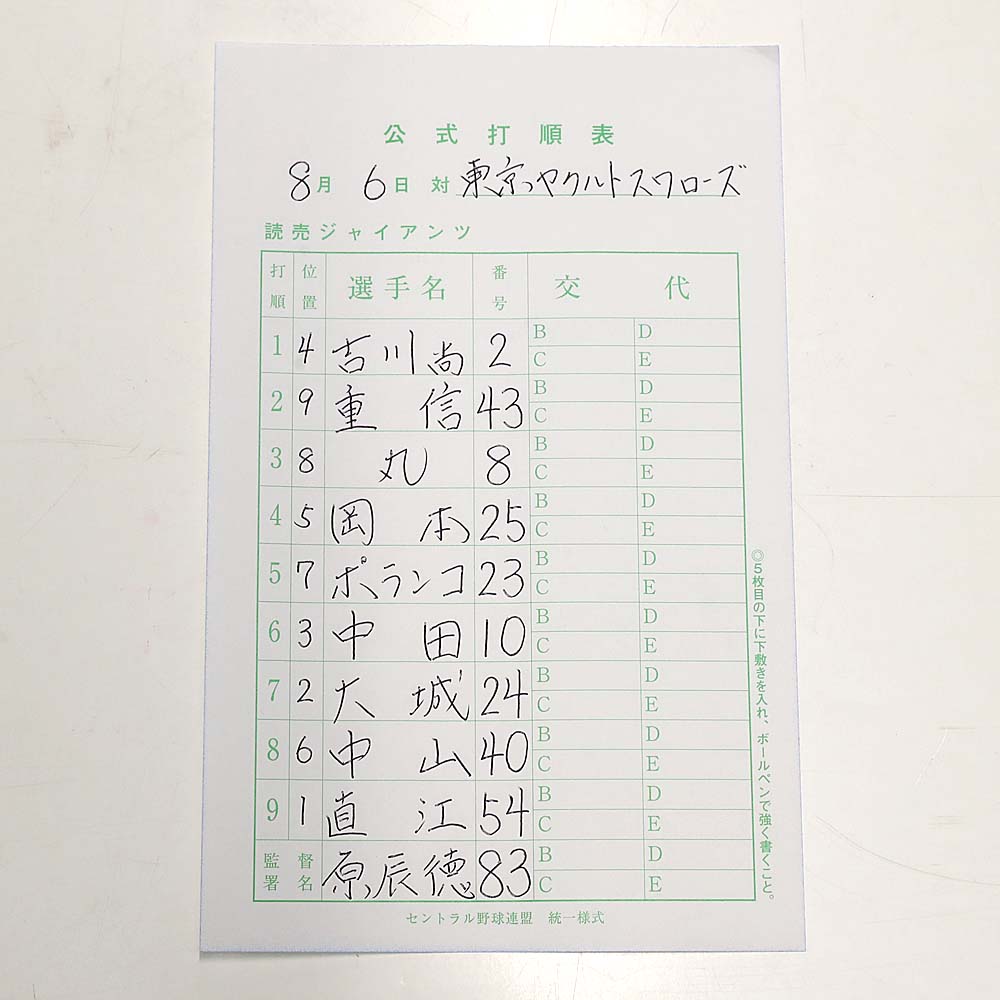 公式打順表
8月 6日 対 東京ヤクルトスワローズ
読売ジャイアンツ
打順 位置 選手名 番号 交代
1 4 吉川尚 2 B D
C E
2 9 重信 43 B D
C E
3 8 丸 8 B D
C E
4 5 岡本 25 B D
C E
5 7 ポランコ 23 B D
C E
6 3 中田 10 B D
C E
7 2 大城 24 B D
C E
8 6 中山 40 B D
C E
9 1 直江 54 B D
C E
監督署名 原辰徳 83 B D
C E
◎5枚目の下に下敷きを入れ、ボールペンで強く書くこと。
セントラル野球連盟 統一様式